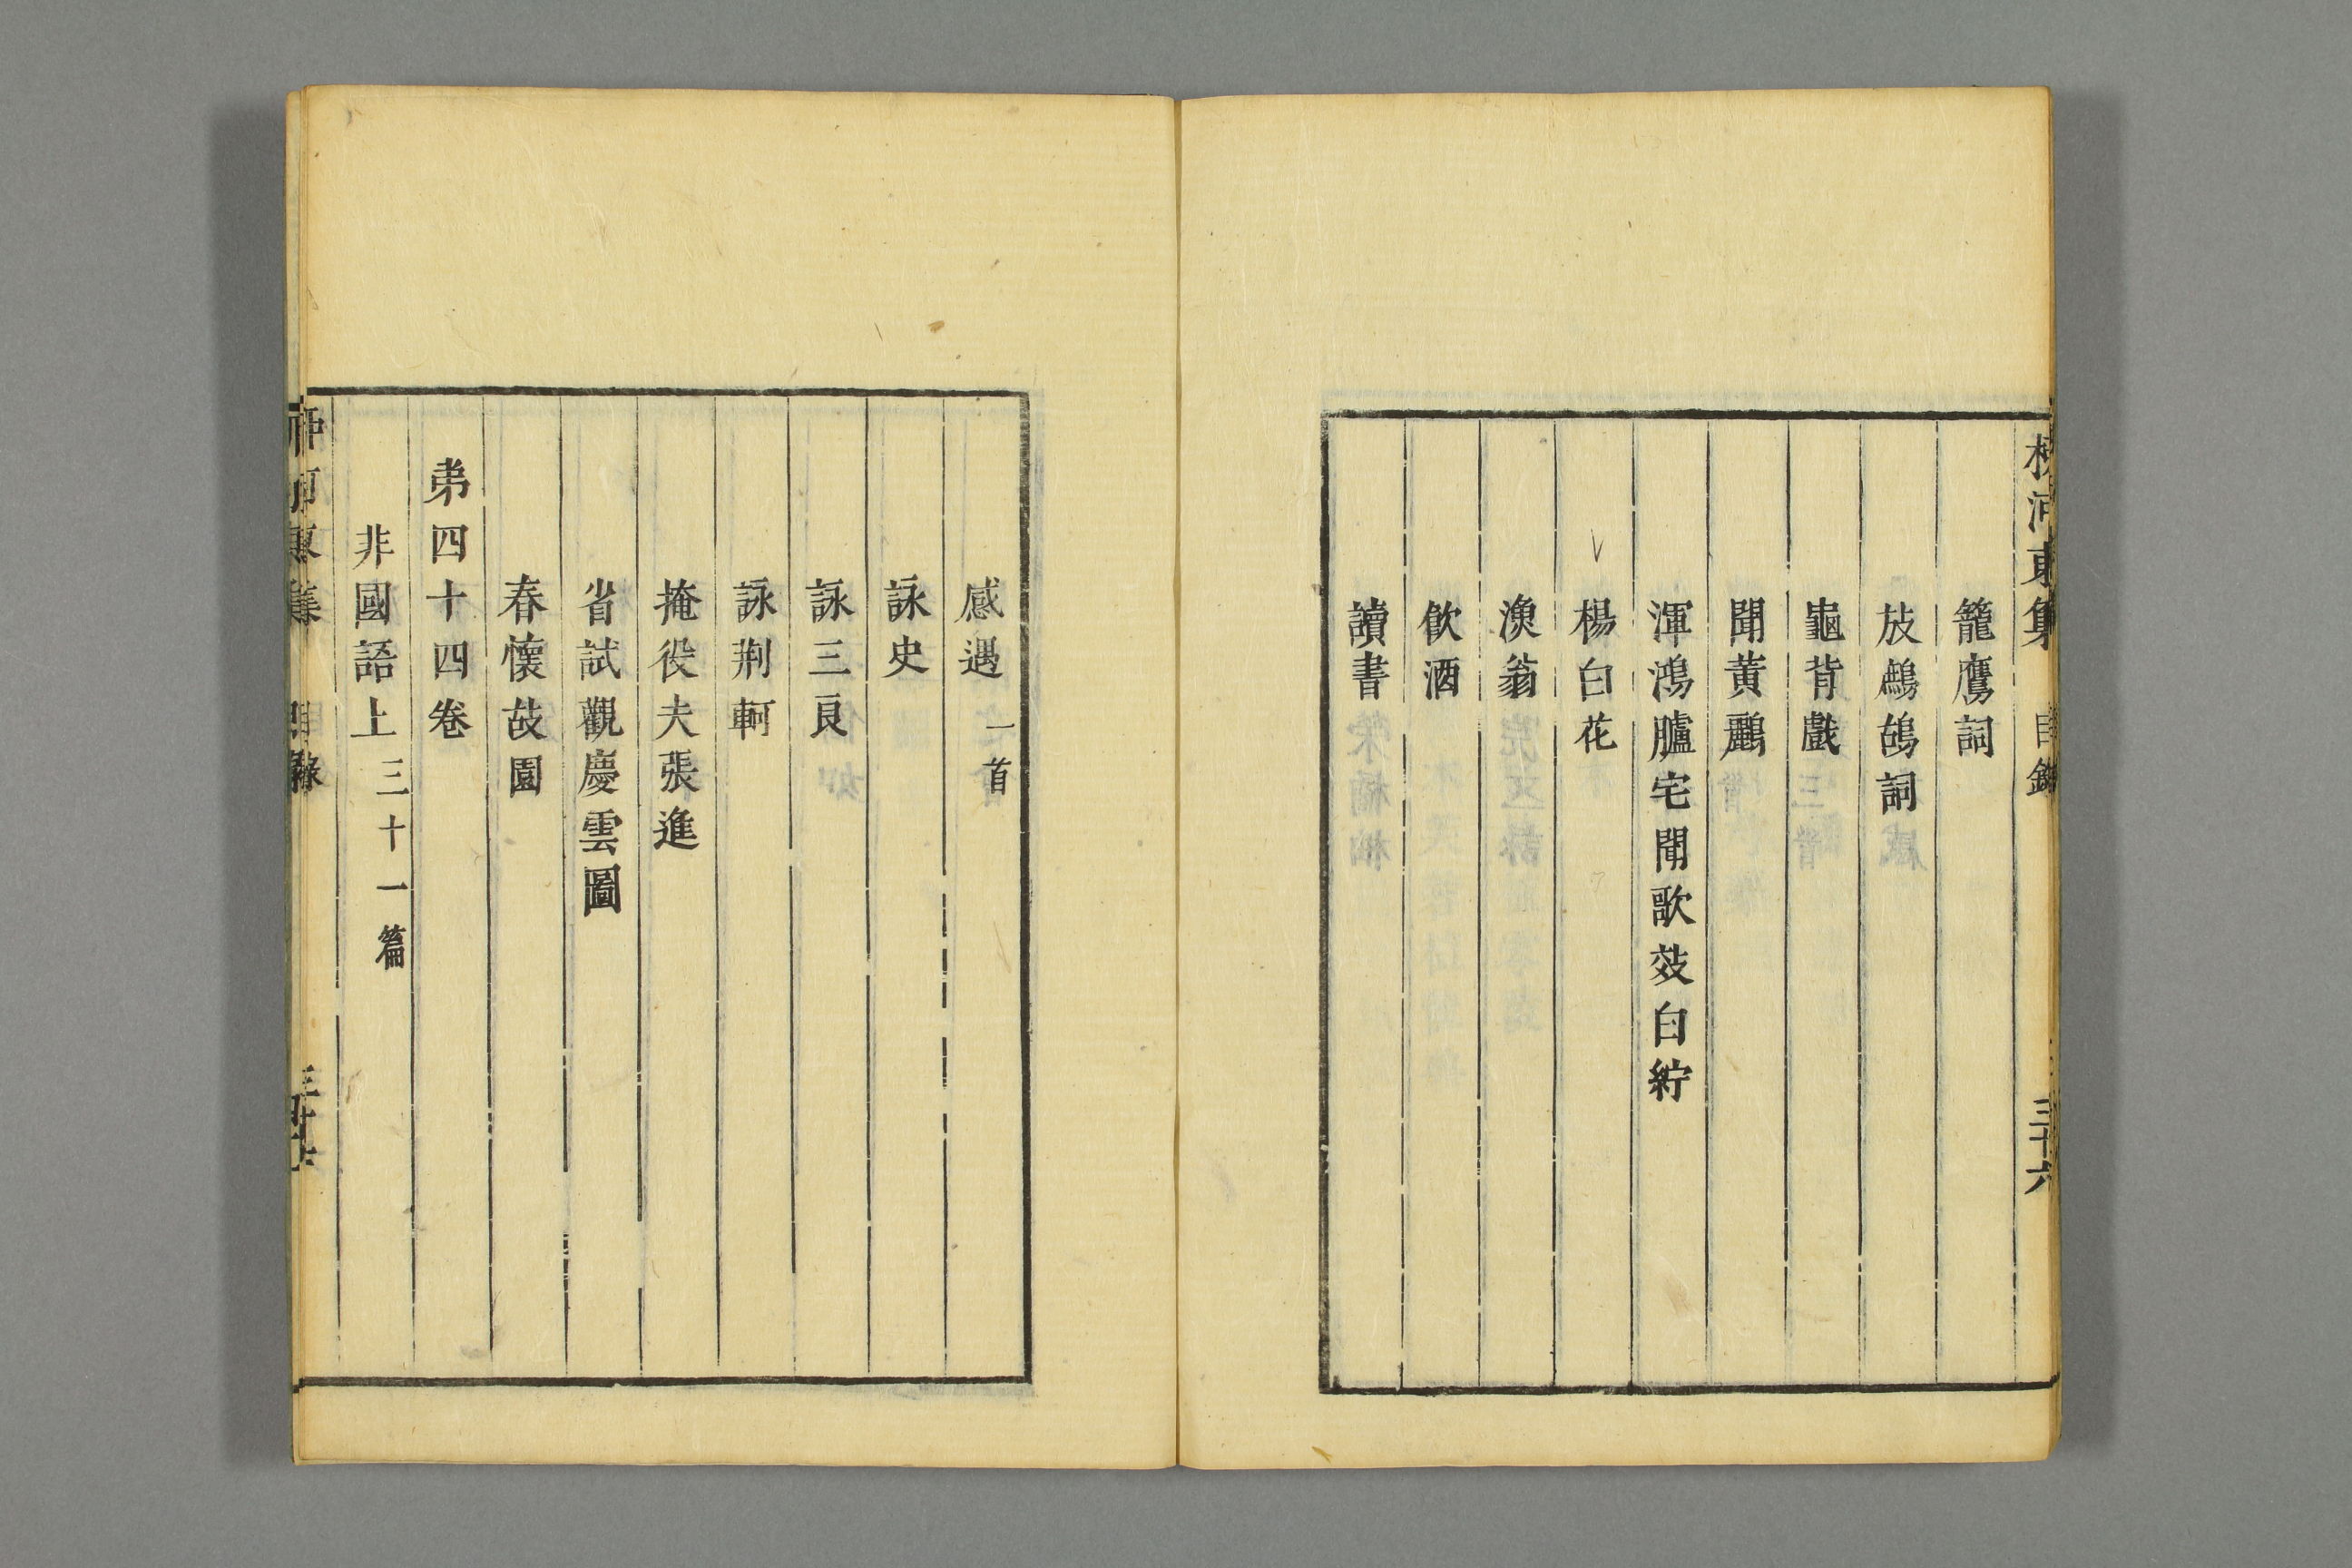 柳河東集 目錄 三十六
籠鷹詞
放鷓鴣詞
龜背戲
聞黃鸝
渾鴻臚宅聞歌效白紵
楊白花
漁翁
飲酒
讀書
感遇 一首
詠史
詠三良
詠荆軻
掩役夫張進
省試觀慶雲圖
春懷故園
弟四十四卷
非國語上 三十一篇
柳河東集 目錄